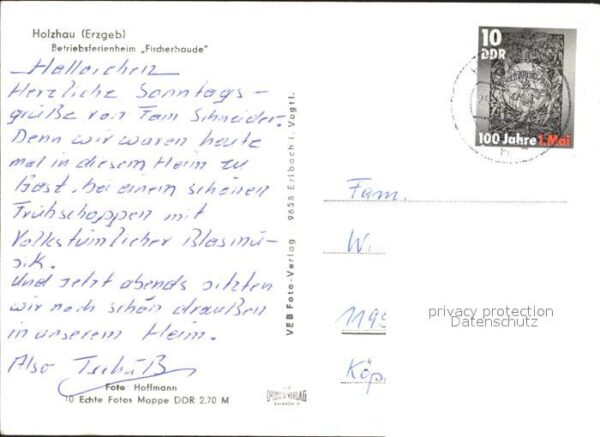 Holzhau (Erzgeb)
Betriebsferienheim „Fischerhaude"
Halloichen
Herzliche Sonntags-
grüße von Fam Schneider.
Denn wir waren heute
mal in diesem Heim zu
Gast, bei einem schönen
Frühschoppen mit
Volkstümlicher Blasmu-
sik.
Und jetzt abends sitzten
wir noch schön draußen
in unserem Heim.
Also Tschüß
Foto Hoffmann
10 Echte Fotos Mappe DDR 2.70 M
VEB Foto-Verlag 9658 Erlbach i. Vogtl.
10
DDR
100 Jahre 1. Mai
Fam.
W.
1195
Köp
privacy protection
Datenschutz